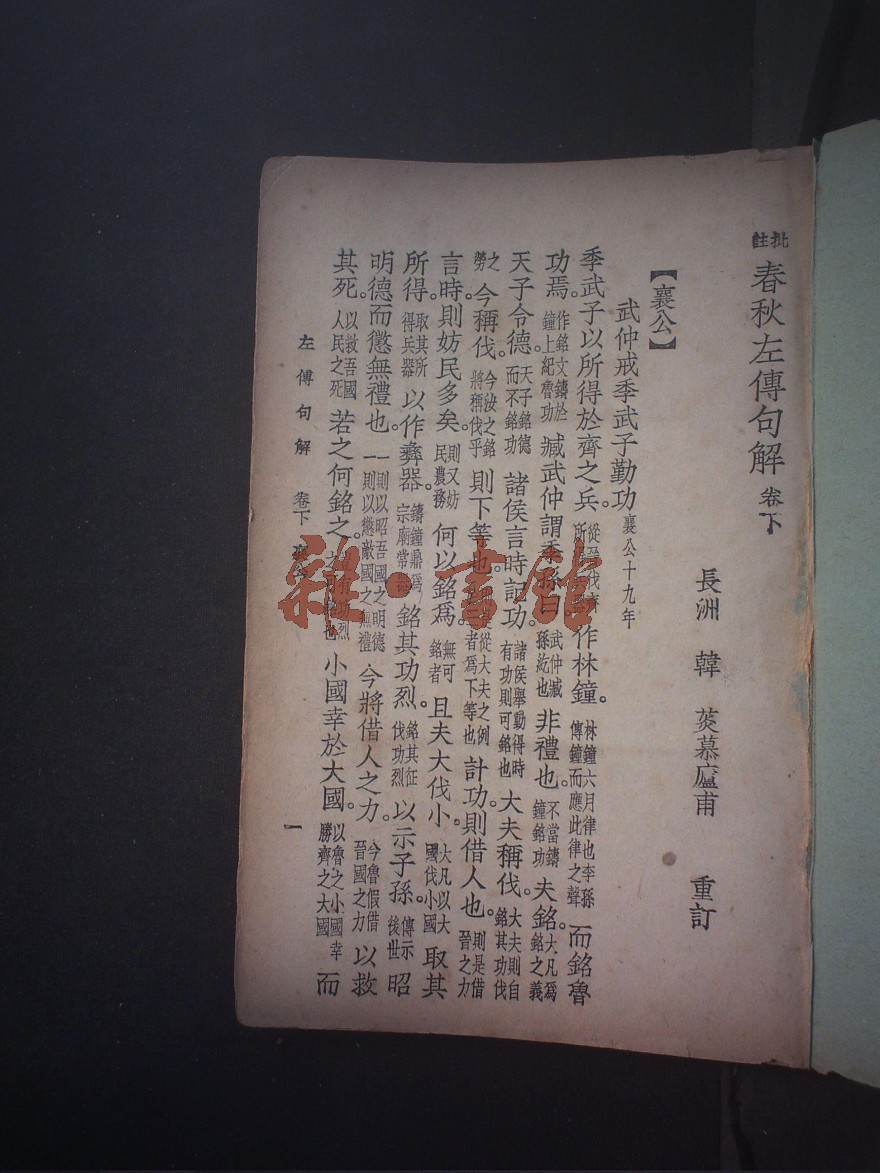 批註 春秋左傳句解 卷下
長洲 韓 菼慕廬甫 重訂
【襄公】
武仲戒季武子勤功 襄公十九年
季武子以所得於齊之兵。從晉伐齊所 作林鐘。林鐘六月律也季孫傳鐘而應此律之聲 而銘魯
功焉。作銘文鑄於鐘上紀魯功 臧武仲謂季孫曰 武仲臧孫紇也 非禮也。不當鑄鐘銘功 夫銘。大凡爲銘之義
天子令德。天子銘德而不銘功 諸侯言時記功。諸侯舉動得時有功則可銘也 大夫稱伐。大夫則自銘其功伐
之勞 今稱伐。今汝之銘將稱伐乎 則下等也。從大夫之例者爲下等也 計功則借人也。則是借晉之力
言時。則妨民多矣。則又妨民農務 何以銘爲 無可銘者 且夫大伐小。大凡以大國伐小國 取其
所得。取其所得兵器 以作彝器。鑄鐘鼎爲宗廟常器 銘其功烈。銘其征伐功烈 以示子孫。傳示後世 昭
明德而懲無禮也。一則以昭吾國之明德一則以懲敵國之無禮 今將借人之力。今魯假借晉國之力 以救
其死。以救吾國人民之死 若之何銘之。功烈也 小國幸於大國。以魯之小國幸勝齊之大國 而
左傳句解 卷下 一
雜·書館